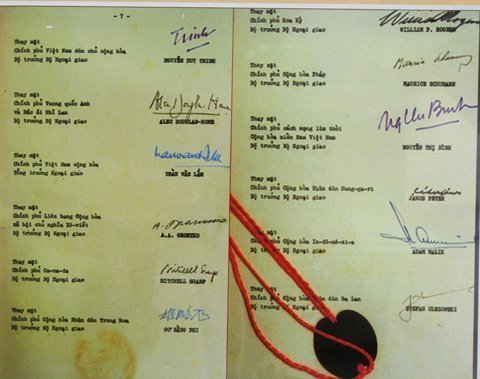 - 7 -
Thay mặt
Chính phủ Việt Nam dân chủ cộng hòa
Bộ trưởng Bộ Ngoại giao
Trinh
NGUYỄN DUY TRINH
Thay mặt
Chính phủ Vương quốc Anh
và Bắc Ái Nhĩ Lan
Bộ trưởng Bộ Ngoại giao
Alec Douglas-Home
ALEC DOUGLAS-HOME
Thay mặt
Chính phủ Việt Nam cộng hòa
Tổng trưởng Ngoại giao
TRẦN VĂN LẮM
Thay mặt
Chính phủ Liên bang Cộng hòa
xã hội chủ nghĩa Xô-viết
Bộ trưởng Bộ Ngoại giao
А. Громыко
A.A. GROMYKO
Thay mặt
Chính phủ Ca-na-da
Bộ trưởng Bộ Ngoại giao
Mitchell Sharp
MITCHELL SHARP
Thay mặt
Chính phủ Cộng hòa Nhân dân Trung Hoa
Bộ trưởng Bộ Ngoại giao
姬鹏飞
CƠ BẰNG PHI
Thay mặt
Chính phủ Hoa Kỳ
Bộ trưởng Bộ Ngoại giao
William P. Rogers
WILLIAN P. ROGERS
Thay mặt
Chính phủ Cộng hòa Pháp
Bộ trưởng Bộ Ngoại giao
Maurice Schumann
MAURICE SCHUMANN
Thay mặt
Chính phủ cách mạng lâm thời
Cộng hòa miền Nam Việt Nam
Bộ trưởng Bộ Ngoại giao
NGUYỄN THỊ BÌNH
Thay mặt
Chính phủ Cộng hòa Nhân dân Hung-ga-ri
Bộ trưởng Bộ Ngoại giao
JANOS PETER
Thay mặt
Cộng hòa In-đô-nê-xi-a
Bộ trưởng Bộ Ngoại giao
ADAM MALIK
Thay mặt
Chính phủ Cộng hòa Nhân dân Ba Lan
Bộ trưởng Bộ Ngoại giao
STEFAN OLSZOWSKI